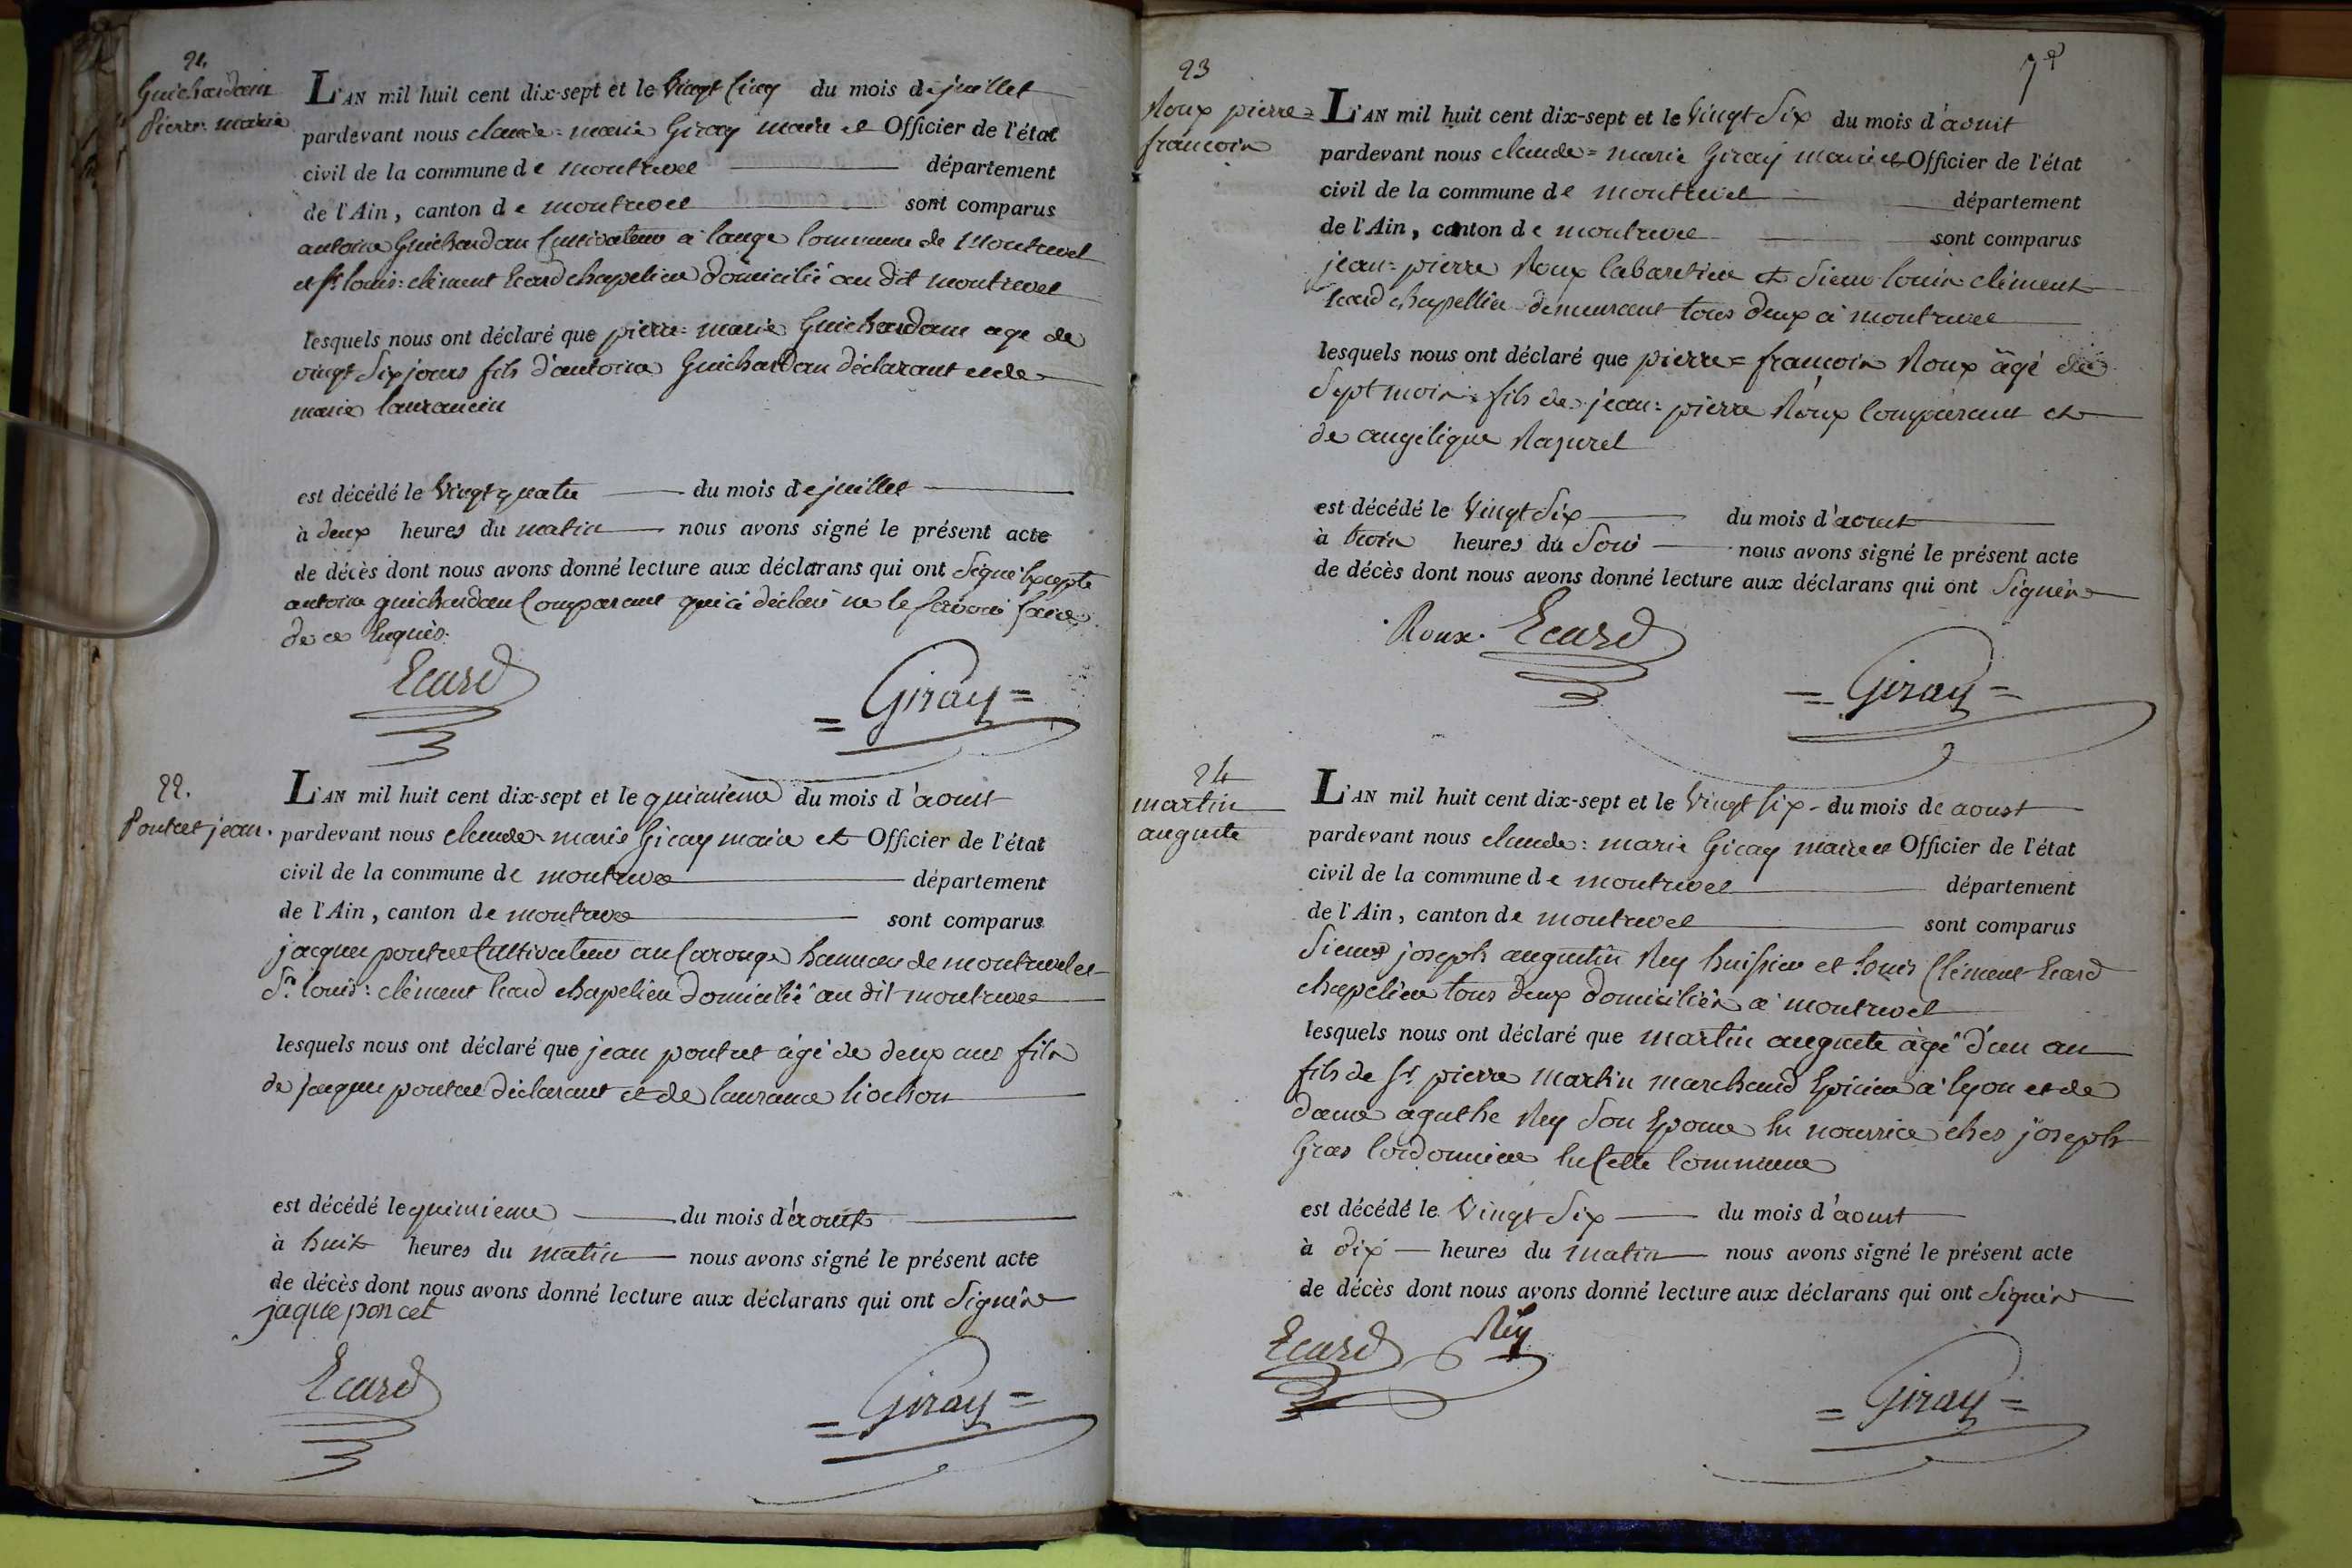 21.
Guichardan
Pierre-marie
L'AN mil huit cent dix-sept et le vingt Cinq du mois de juillet
pardevant nous claude=marie Giray maire et Officier de l'état
civil de la commune de montrevel département
de l'Ain, canton de montrevel sont comparus
antoine Guichardan Cultivateur a Commune de Montrevel
et Sr. louis=clément Ecard chapelier domicilié au dit montrevel
lesquels nous ont déclaré que pierre=marie Guichardan age de
vingt Six jours fils d'antoine Guichardan déclarant et de
marie
est décédé le vingt quatre du mois de juillet
à deux heures du matin nous avons signé le présent acte
de décès dont nous avons donné lecture aux déclarans qui ont Signé Excepté
antoine guichardan Comparant qui a déclaré ne le savoir faire
de ce Enquis.
Ecard
=Giray=
22.
Pontcet jean.
L'AN mil huit cent dix-sept et le quinzieme du mois d'aoust
pardevant nous claude=marie Giray maire et Officier de l'état
civil de la commune de montrevel département
de l'Ain, canton de montrevel sont comparus
jacque pontcet Cultivateur au Carouge hammau de montrevel et
Sr. louis=clément Ecard chapelier domicilié au dit montrevel
lesquels nous ont déclaré que jean pontcet âgé de deux ans fils
de jacque pontcet déclarant et de laurance
est décédé le quinzieme du mois d'aoust
à huit heures du matin nous avons signé le présent acte
de décès dont nous avons donné lecture aux déclarans qui ont Signés
jaque poncet
Ecard
=Giray=
7e
23
Roux pierre=
francois
L'AN mil huit cent dix-sept et le vingt Six du mois d'aoust
pardevant nous claude=marie Giray maire et Officier de l'état
civil de la commune de montrevel département
de l'Ain, canton de montrevel sont comparus
jean=pierre Roux Cabaretier et Sieur louis clément
Ecard chapellier demeurant tous deux a montrevel
lesquels nous ont déclaré que pierre=francois Roux âgé de
Sept mois fils de jean=pierre Roux Comparant et
de angelique Razurel
est décédé le vingt Six du mois d'aoust
à trois heures du Soir nous avons signé le présent acte
de décès dont nous avons donné lecture aux déclarans qui ont Signés
Roux. Ecard
=Giray=
24
martin
auguste
L'AN mil huit cent dix-sept et le vingt Six du mois de aoust
pardevant nous claude=marie Giray maire et Officier de l'état
civil de la commune de montrevel département
de l'Ain, canton de montrevel sont comparus
Sieurs joseph augustin Rey huissier et louis Clément Ecard
chapelier tous deux domiciliés a montrevel
lesquels nous ont déclaré que martin auguste âgé d'un an
fils de Sr. pierre martin marchand Epicier a lyon et de
dame agathe Rey Son Epouse En nourrice chez joseph
Gras Cordonnier En Cette Commune
est décédé le vingt Six du mois d'aoust
à dix heures du matin nous avons signé le présent acte
de décès dont nous avons donné lecture aux déclarans qui ont Signés
Ecard Rey
=Giray=